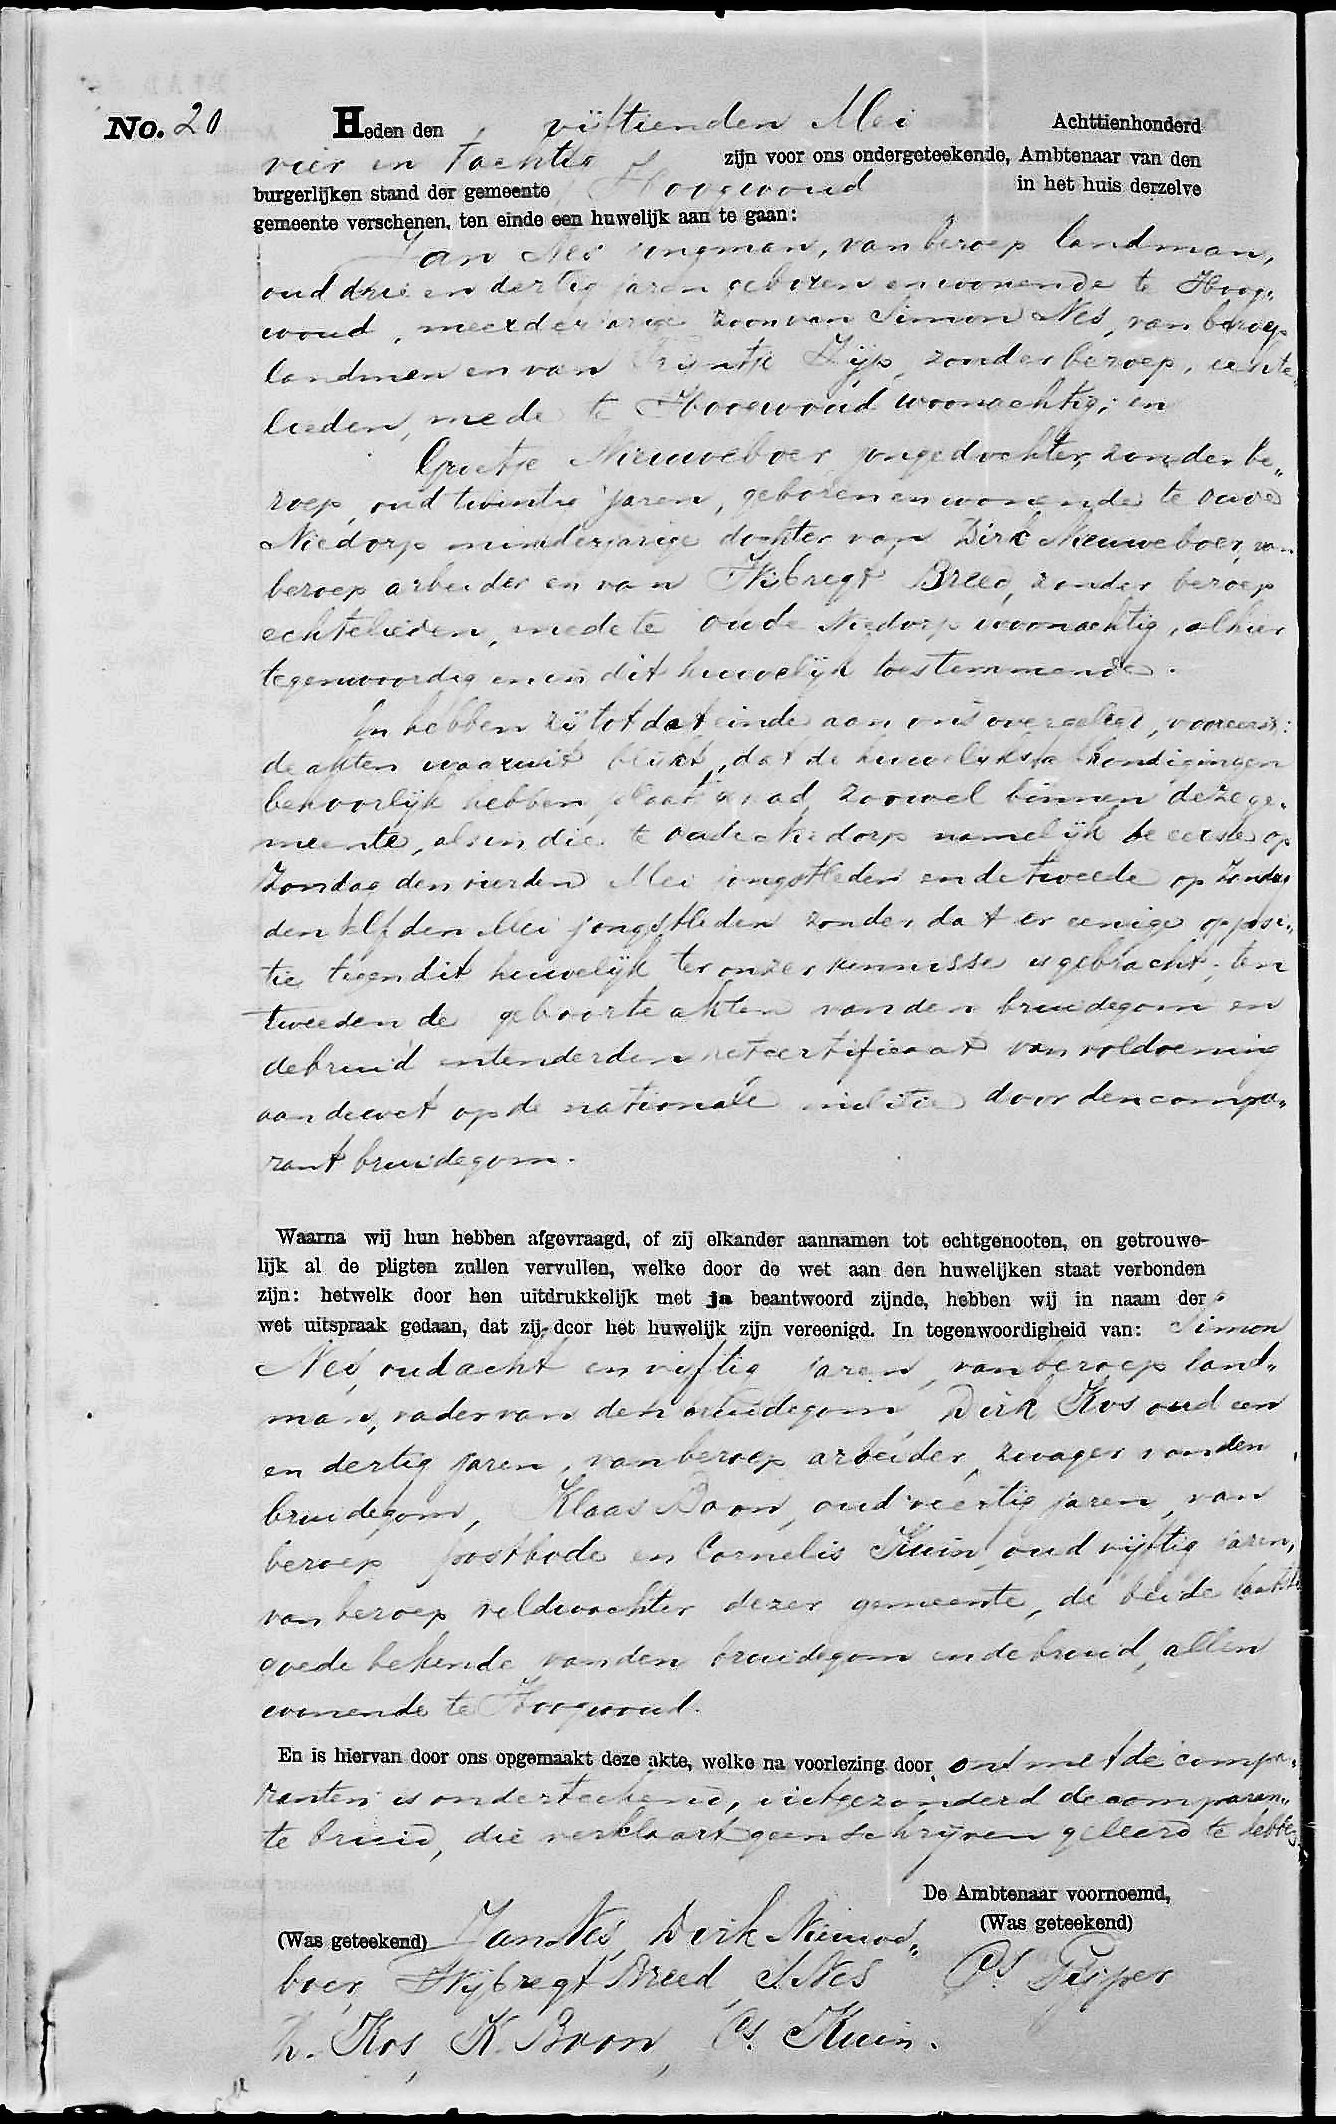 No. 20 Heden den vijftienden Mei Achttienhonderd
vier en tachtig zijn voor ons ondergeteekende, Ambtenaar van den
burgerlijken stand der gemeente Hoogwoud in het huis derzelve
gemeente verschenen, ten einde een huwelijk aan te gaan:
Jan Nes jongman, van beroep landman,
oud drie en dertig jaren geboren en wonende te Hoog„
woud, meerderjarige zoon van Simon Nes, van beroep
landman en van Trijntje Zijp, zonder beroep, echte„
lieden, mede te Hoogwoud woonachtig; en
Grietje Nieuweboer jongedochter, zonder be„
roep, oud twintig jaren, geboren en wonende te Oude
Niedorp minderjarige dochter van Dirk Nieuweboer, van
beroep arbeider en van Wijbregt Breed, zonder beroep
echtelieden, mede te Oude Niedorp woonachtig, alhier
tegenwoordig en in dit huwelijk toestemmende.
En hebben zij tot dat einde aan ons overgelegd, vooreerst:
de akten waaruit blijkt, dat de huwelijksafkondigingen
behoorlijk hebben plaats gehad, zoowel binnen deze ge„
meente, als in die te Oude Niedorp namelijk de eerste op
Zondag den vierden Mei jongstleden en de tweede op Zondag
den elfden Mei jongstleden zonder dat er eenige opposi„
tie tegen dit huwelijk ter onzer kennisse is gebracht; ten
tweeden de geboorteakten van den bruidegom en
de bruid en ten derden het certificaat van voldoening
aan de wet op de nationale militie door den compa„
rant bruidegom.
Waarna wij hun hebben afgevraagd, of zij elkander aannamen tot echtgenooten, en getrouwe-
lijk al de pligten zullen vervullen, welke door de wet aan den huwelijken staat verbonden
zijn: hetwelk door hen uitdrukkelijk met ja beantwoord zijnde, hebben wij in naam der
wet uitspraak gedaan, dat zij door het huwelijk zijn vereenigd. In tegenwoordigheid van: Simon
Nes, oud acht en vijftig jaren, van beroep land„
man, vader van den bruidegom, Dirk Kos oud een
en dertig jaren, van beroep arbeider, zwager van den
bruidegom, Klaas Boon, oud veertig jaren, van
beroep postbode en Cornelis Kuin, oud vijftig jaren,
van beroep veldwachter dezer gemeente, de beide laatste
goede bekende van den bruidegom en de bruid, allen
wonende te Hoogwoud.
En is hiervan door ons opgemaakt deze akte, welke na voorlezing door ons met de compa„
ranten is onderteekend, uitgezonderd de comparan„
te bruid, die verklaart geen schrijven geleerd te hebben
De Ambtenaar voornoemd,
(Was geteekend) Jan Nes, Dirk Nieuwe„ (Was geteekend)
boer, Wijbregt Breed, S. Nes Cs. Pijper
D. Kos, K. Boon, Cs. Kuin.